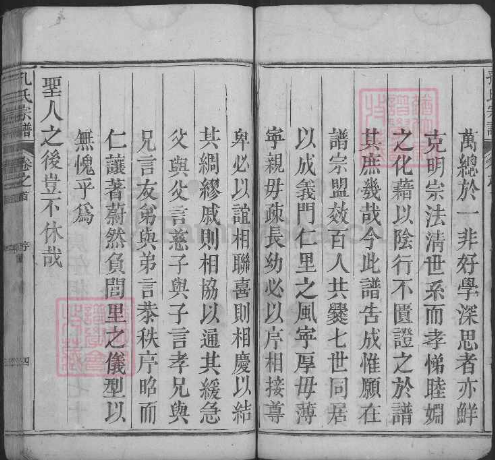 萬總於一非好學深思者亦鮮
克明宗法清世系而孝悌睦婣
之化藉以陰行不匱證之於譜
其庶幾哉今此譜告成惟願在
譜宗盟效百人共爨七世同居
以成義門仁里之風寧厚毋薄
寧親毋疎長幼必以序相接尊
卑必以誼相聯喜則相慶以結
其綢繆戚則相協以通其緩急
父與父言慈子與子言孝兄與
兄言友弟與弟言恭秩序昭而
仁讓著蔚然負閭里之儀型以
無愧乎爲
聖人之後豈不休哉
孔氏宗譜
卷之首
序
四